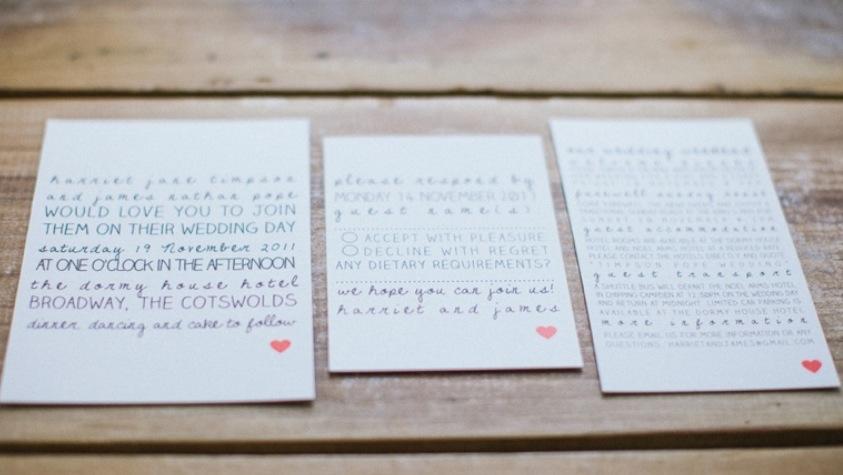 harriet jane timpson
and james nathan pope
WOULD LOVE YOU TO JOIN
THEM ON THEIR WEDDING DAY
saturday 19 November 2011
AT ONE O'CLOCK IN THE AFTERNOON
the dormy house hotel
BROADWAY, THE COTSWOLDS
dinner dancing and cake to follow
please respond by
MONDAY 14 NOVEMBER 2011
guest name(s)
ACCEPT WITH PLEASURE
DECLINE WITH REGRET
ANY DIETARY REQUIREMENTS?
we hope you can join us!
harriet and james
our wedding weekend
farewell
guest accommodation
HOTEL ROOMS ARE AVAILABLE AT THE DORMY HOUSE
PLEASE CONTACT THE HOTELS DIRECTLY AND QUOTE
guest transport
A SHUTTLE BUS WILL DEPART THE NOEL ARMS HOTEL
IN CHIPPING CAMPDEN AT 12.30PM ON THE WEDDING DAY
AND RETURN AT MIDNIGHT. LIMITED CAR PARKING IS
AVAILABLE AT THE DORMY HOUSE HOTEL
more information
PLEASE EMAIL US FOR MORE INFORMATION OR ANY
QUESTIONS: HARRIETANDJAMES@GMAIL.COM